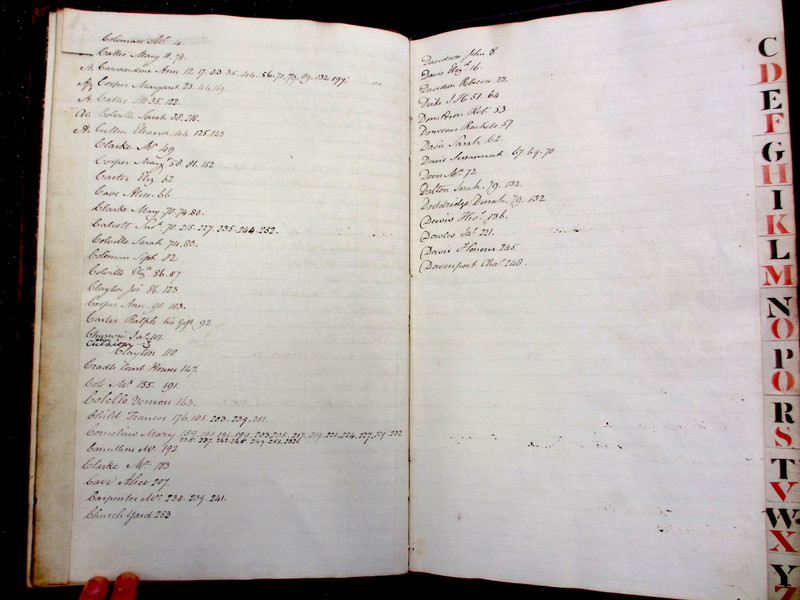 Coleman 4
Catter Mary 11. 74.
A. Ann 12. 17. 23. 35. 44. 56. 71. 79. 89. 132. 199
Cooper Margaret. 23. 44.
A. 35. 122.
Colville Sarah 38.
A. Cullen Eleanor 44 125.
Clarke Mrs 49
Cooper Mary 58. 81. 152
Carter Eliz 62
Cave Alice. 66
Clarke Mary 70. 74. 80.
70. 215. 227. 235. 244. 252.
Colville Sarah 74. 80.
Coleman Sept. 82
Colville 86. 87
Clayton Jos 86. 123
Cooper Ann 90 103.
Carter Ralph his Gift 92
Clayton 110
Cradle Court Houses 147.
Cole Mrs 155. 191.
Colello Vernon 163.
Child Frances 176. 185. 203. 239. 251.
Cornelius Mary 189. 190 191. 199. 203 205. 217. 219. 221. 224. 227. 229. 232
Mr. 192
Clarke Mr. 193
Cave Alice 207
Carpenter Mr. 238. 239. 241.
Church Yard 253
Davidson John 8
Davis 16.
Davidson Rebecca. 22
51. 64
Donaldson Robt 53
Donovan Rachel. 57
Davis Sarah. 62.
Davis Susannah. 67. 64. 70
Dover Mr. 72
Dalton Sarah. 79. 132.
Doddridge Dinah. 79. 132
Davis Thos. 136.
Dowles 221.
Davis Honour 245.
Davenport 248.
C
D
E
F
G
H
I
K
L
M
N
O
P
Q
R
S
T
V
W
X
Y
Z